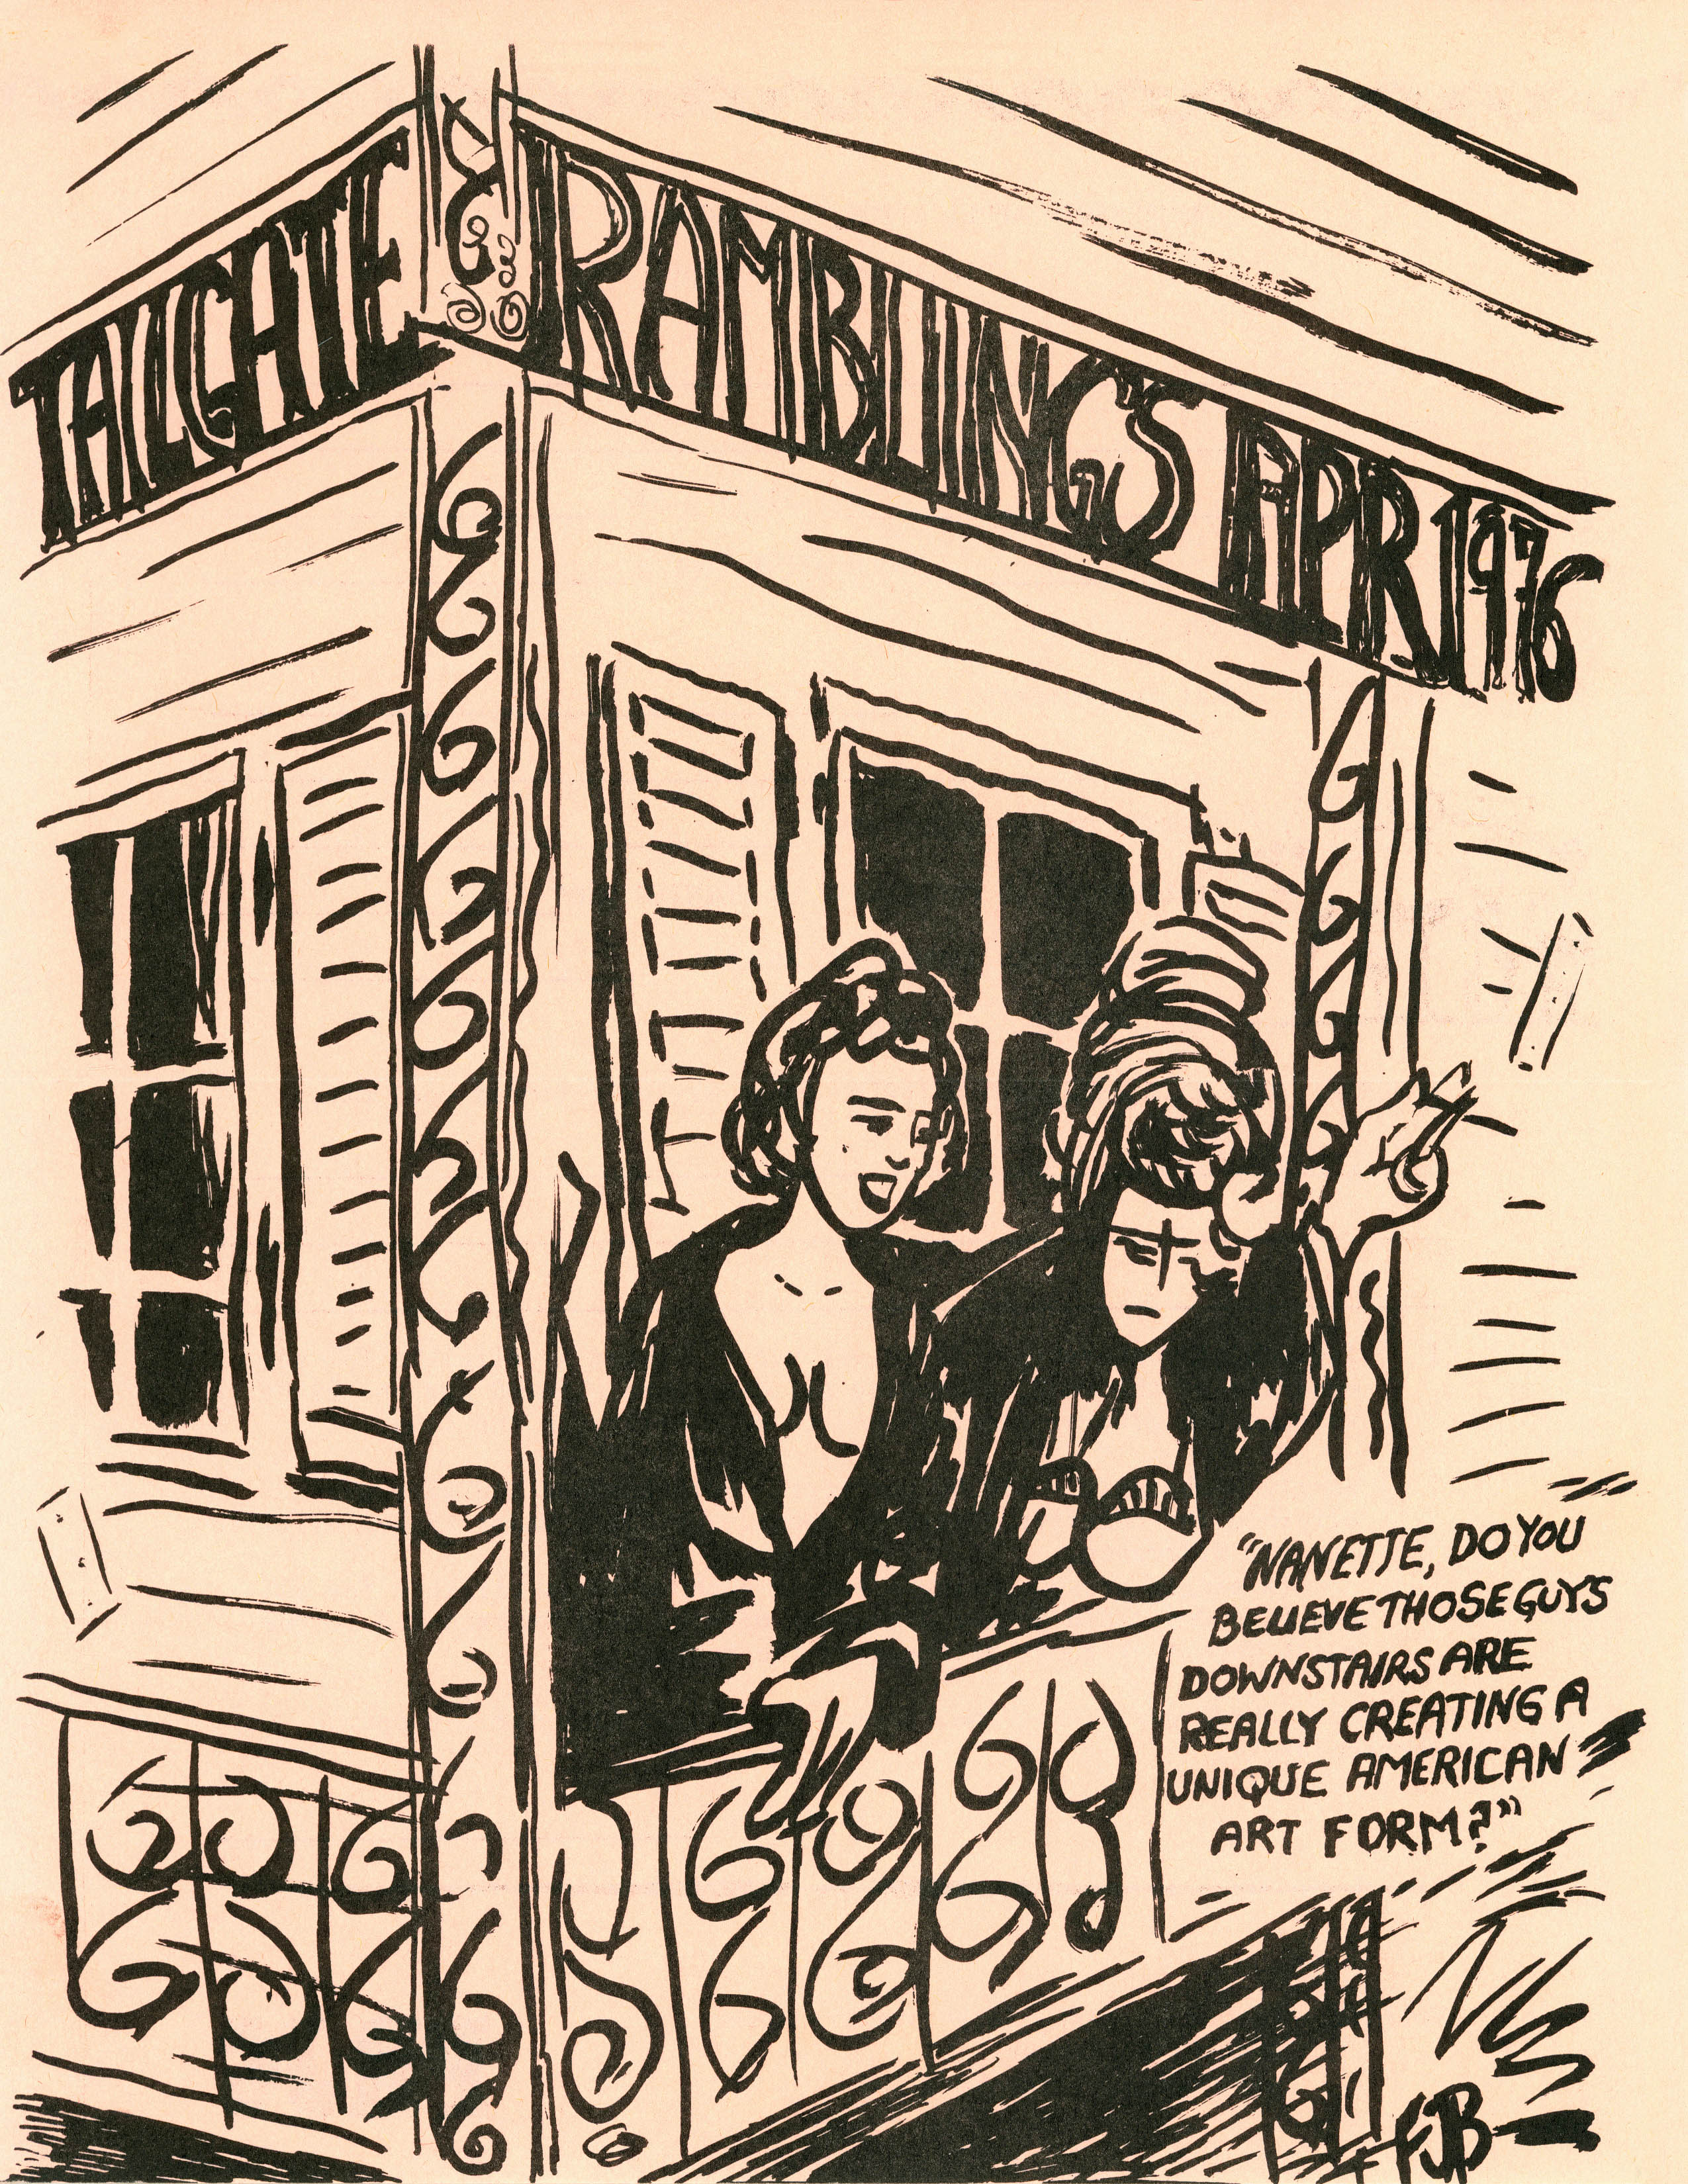 TAILGATE & RAMBLINGS APR 1976
"NANETTE, DO YOU
BELIEVE THOSE GUYS
DOWNSTAIRS ARE
REALLY CREATING A
UNIQUE AMERICAN
ART FORM?"
FJB